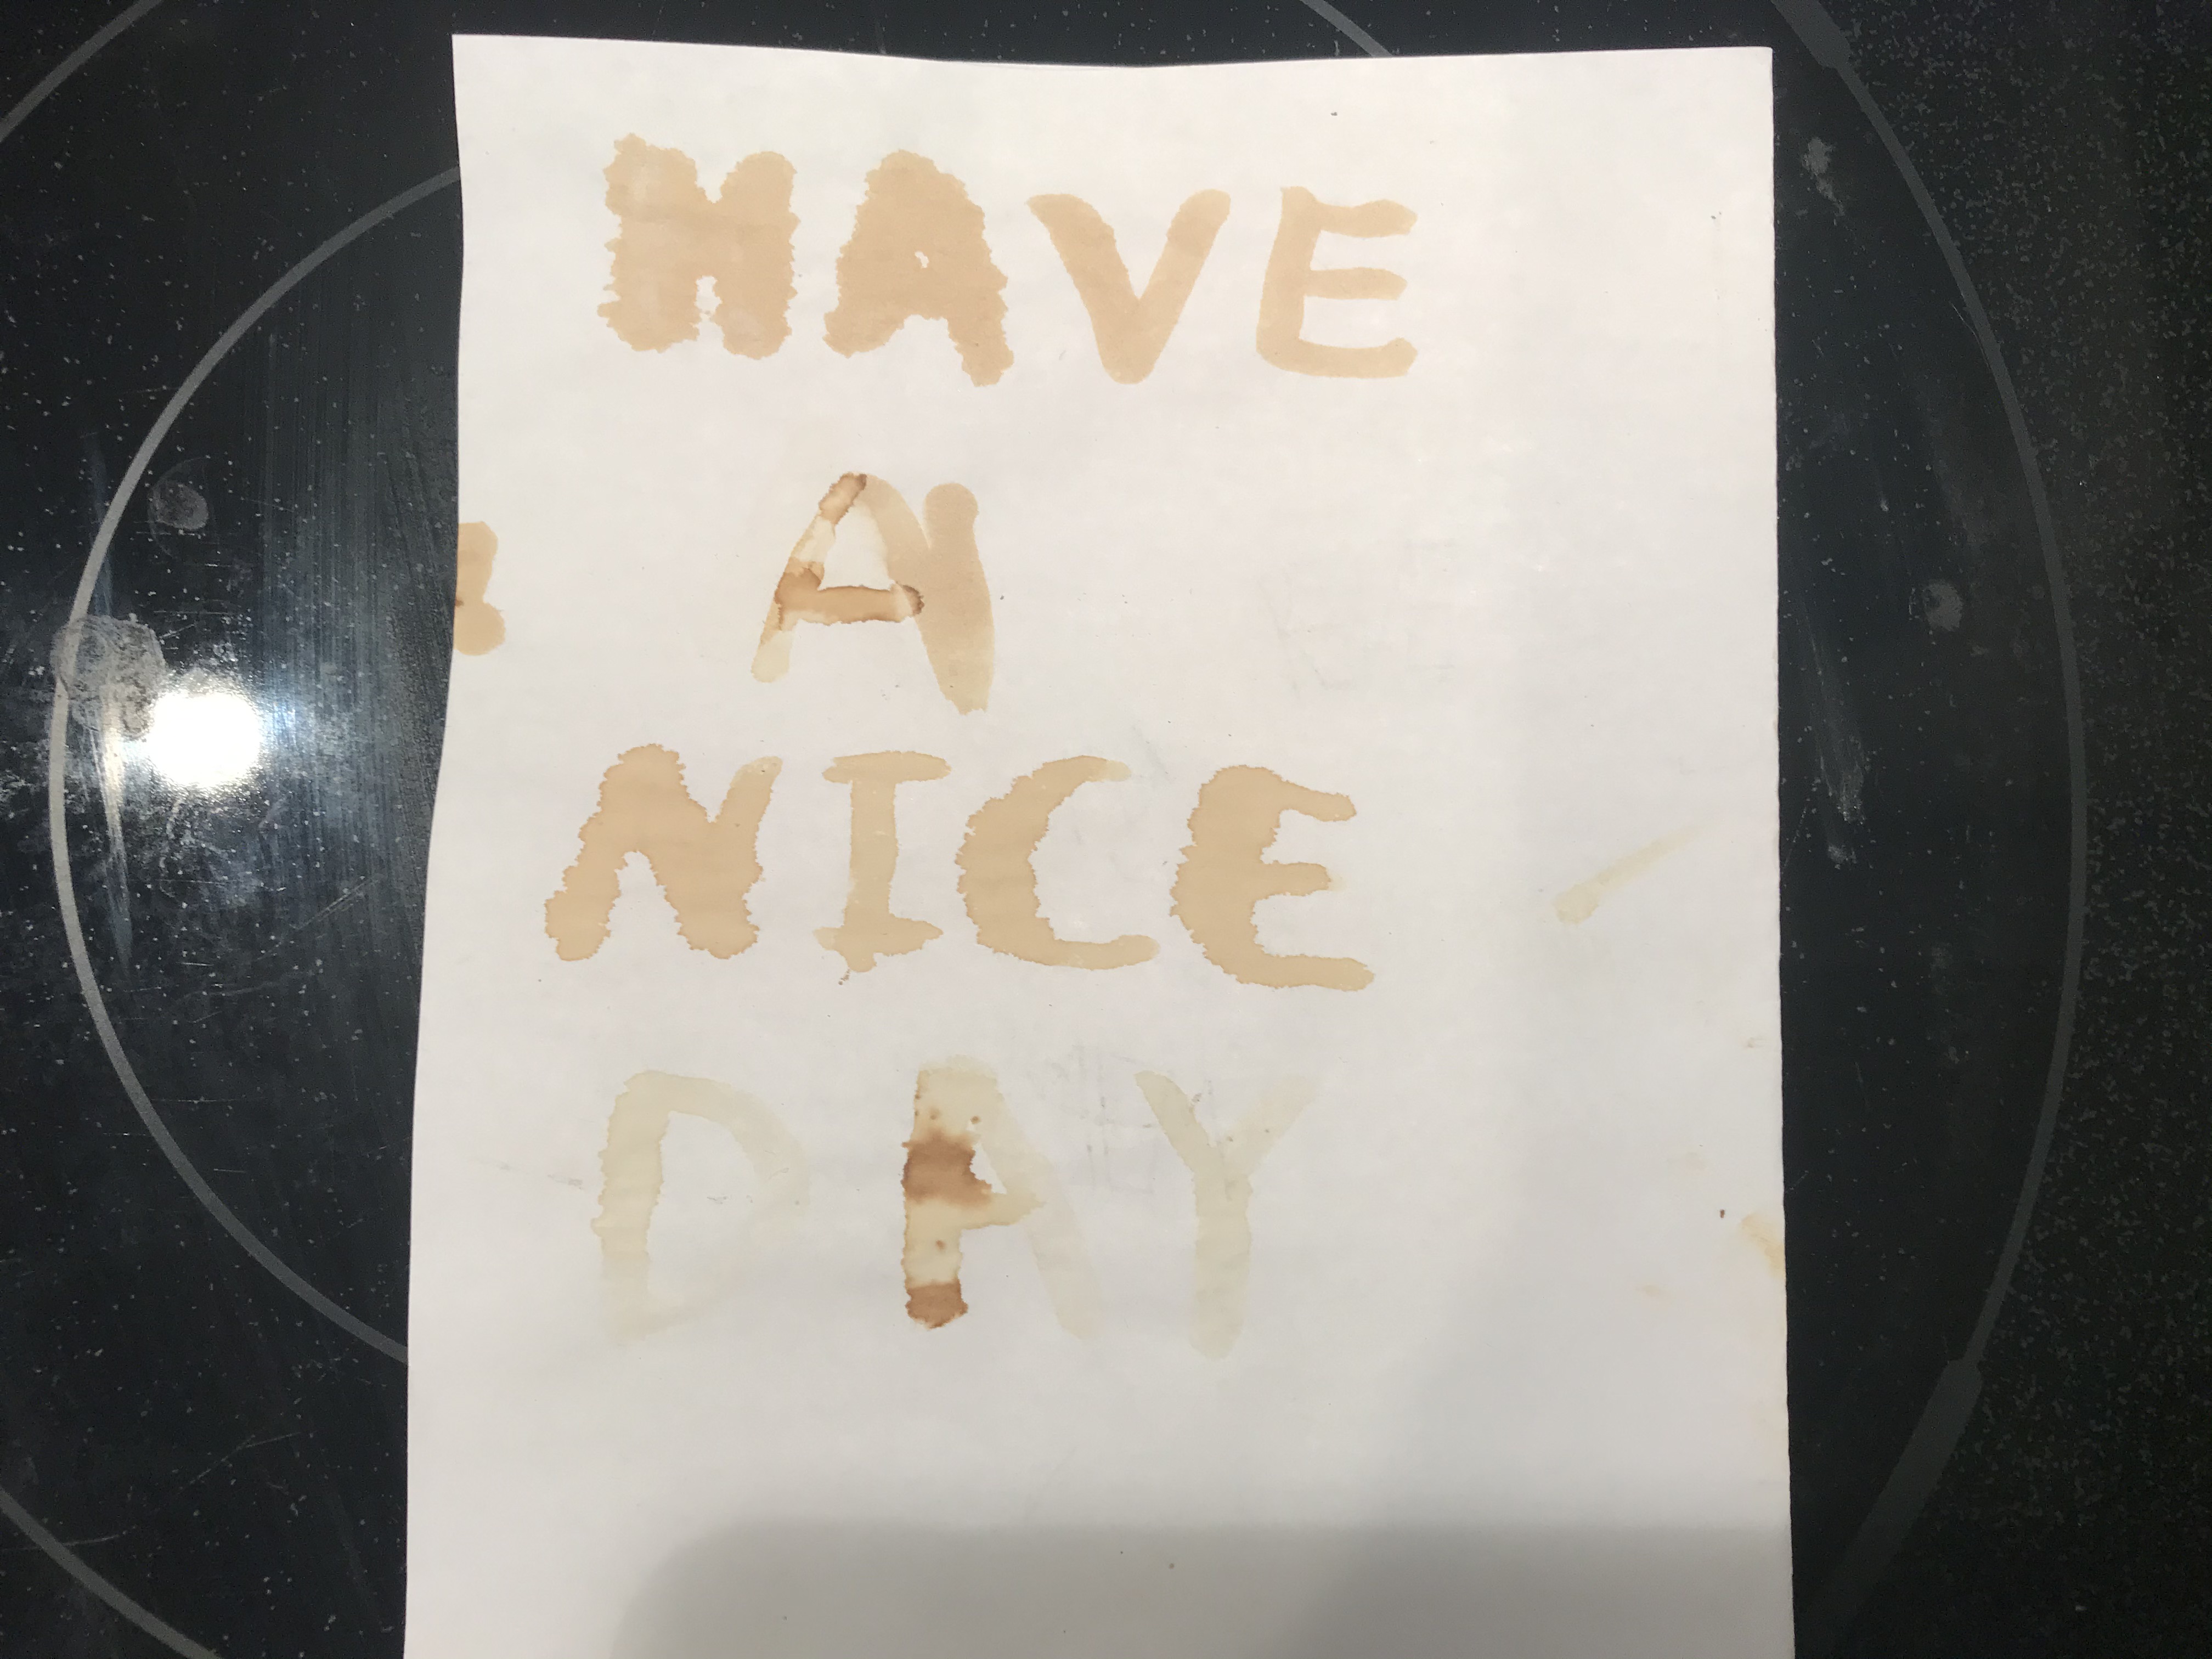 HAVE
A
NICE
DAY